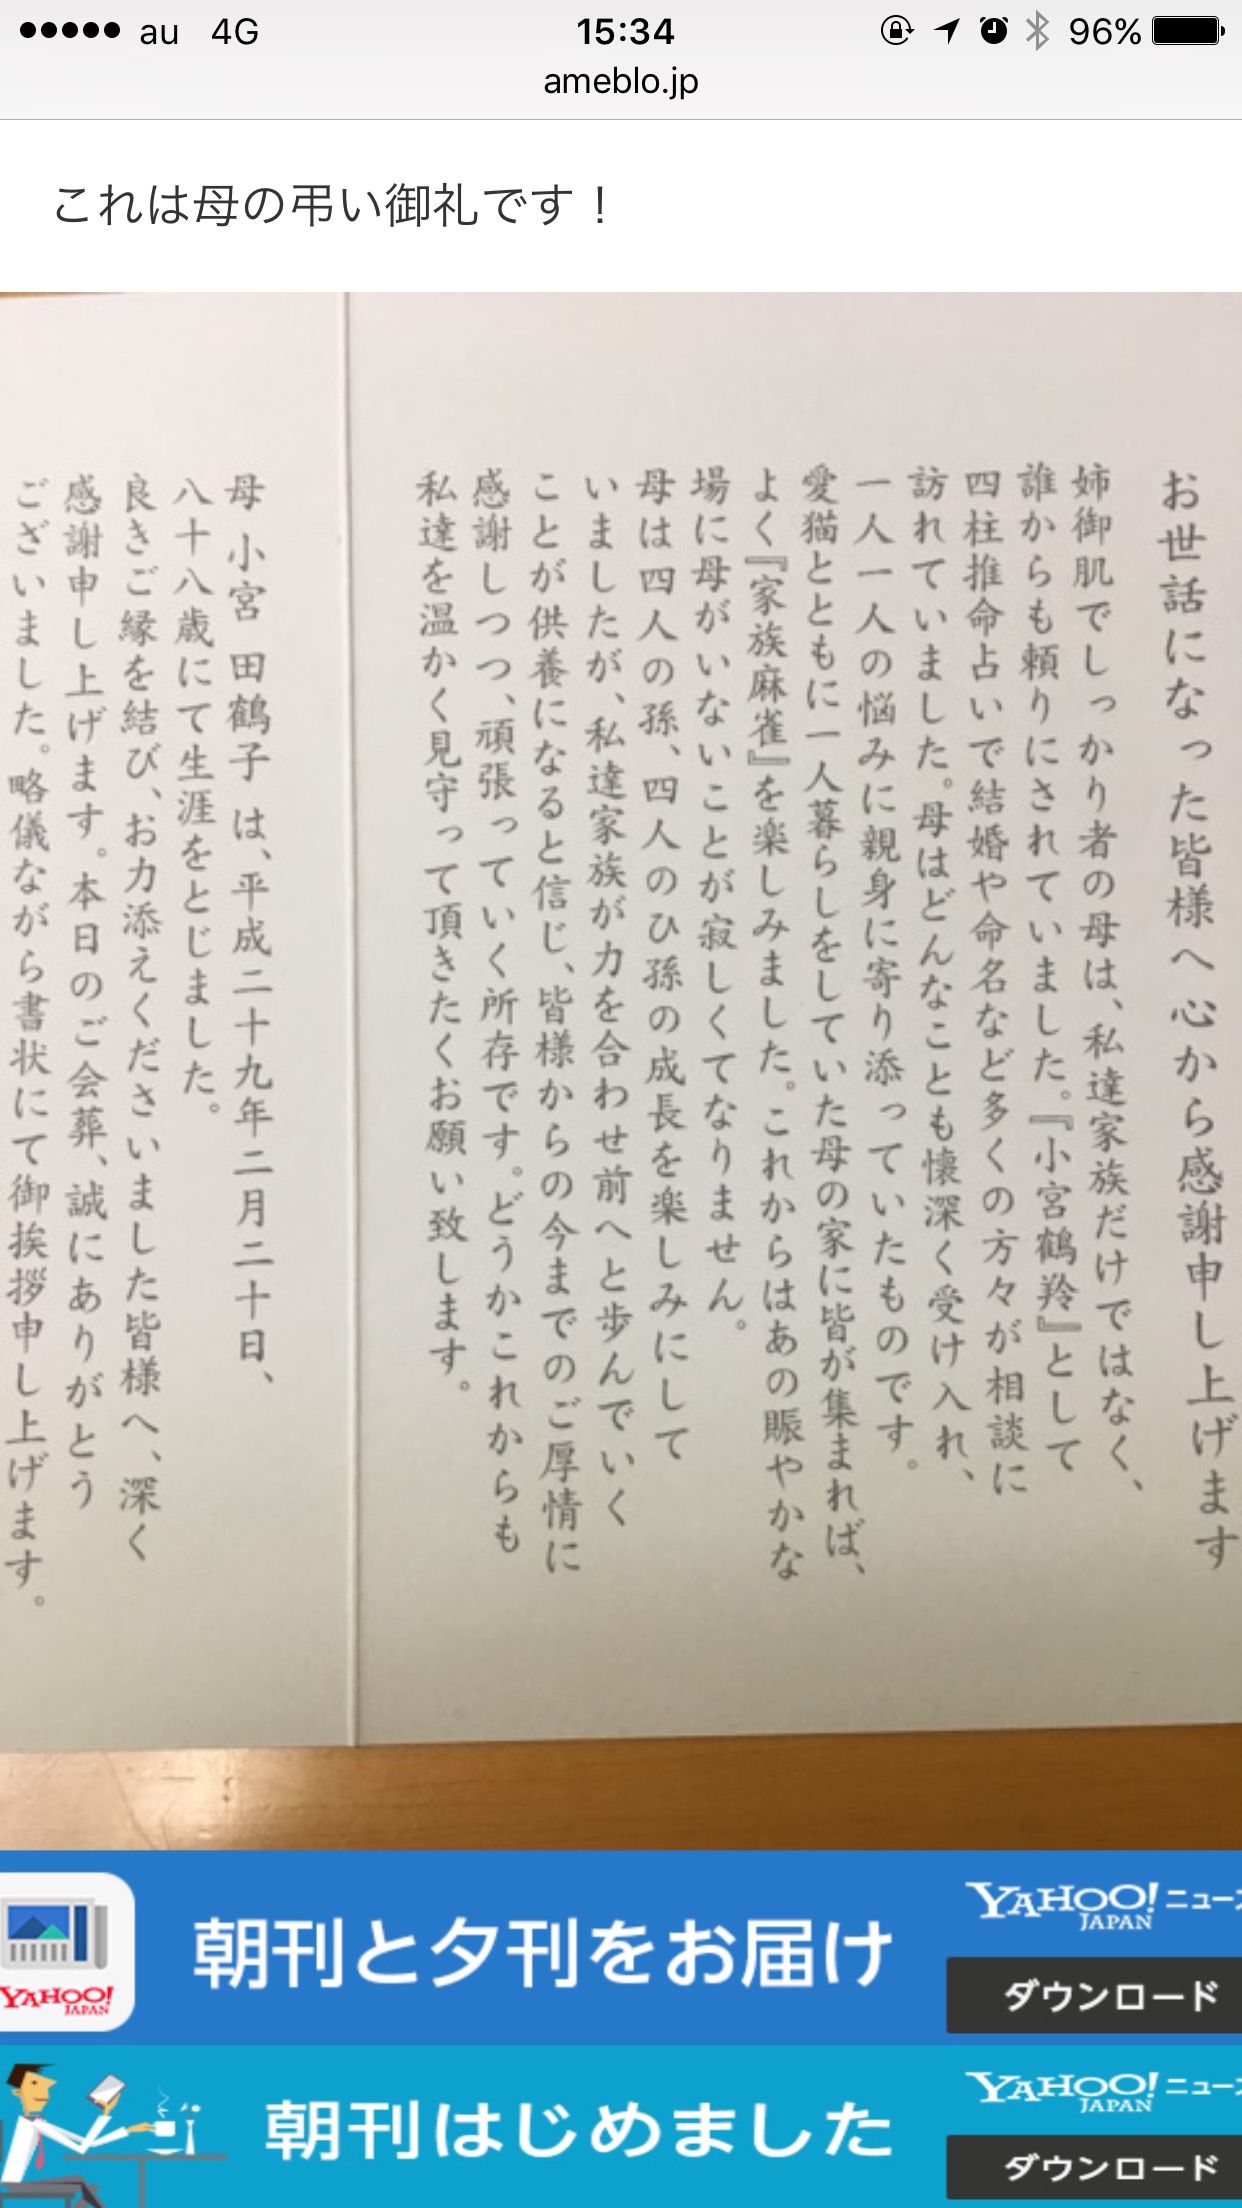 au 4G 15:34 96%
ameblo.jp
これは母の弔い御礼です！
お世話になった皆様へ心から感謝申し上げます
姉御肌でしっかり者の母は、私達家族だけではなく、
誰からも頼りにされていました。『小宮鶴羚』として
四柱推命占いで結婚や命名など多くの方々が相談に
訪れていました。母はどんなことも懐深く受け入れ、
一人一人の悩みに親身に寄り添っていたものです。
愛猫とともに一人暮らしをしていた母の家に皆が集まれば、
よく『家族麻雀』を楽しみました。これからはあの賑やかな
場に母がいないことが寂しくてなりません。
母は四人の孫、四人のひ孫の成長を楽しみにして
いましたが、私達家族が力を合わせ前へと歩んでいく
ことが供養になると信じ、皆様からの今までのご厚情に
感謝しつつ、頑張っていく所存です。どうかこれからも
私達を温かく見守って頂きたくお願い致します。
母 小宮 田鶴子 は、平成二十九年二月二十日、
八十八歳にて生涯をとじました。
良きご縁を結び、お力添えくださいました皆様へ、深く
感謝申し上げます。本日のご会葬、誠にありがとう
ございました。略儀ながら書状にて御挨拶申し上げます。
YAHOO!
JAPAN
朝刊と夕刊をお届け
YAHOO! ニュース
JAPAN
ダウンロード
朝刊はじめました
YAHOO! ニュース
JAPAN
ダウンロード